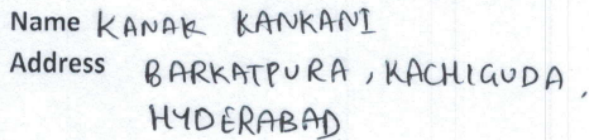 Name KANAK KANKANI
Address BARKATPURA , KACHIGUDA ,
HYDERABAD